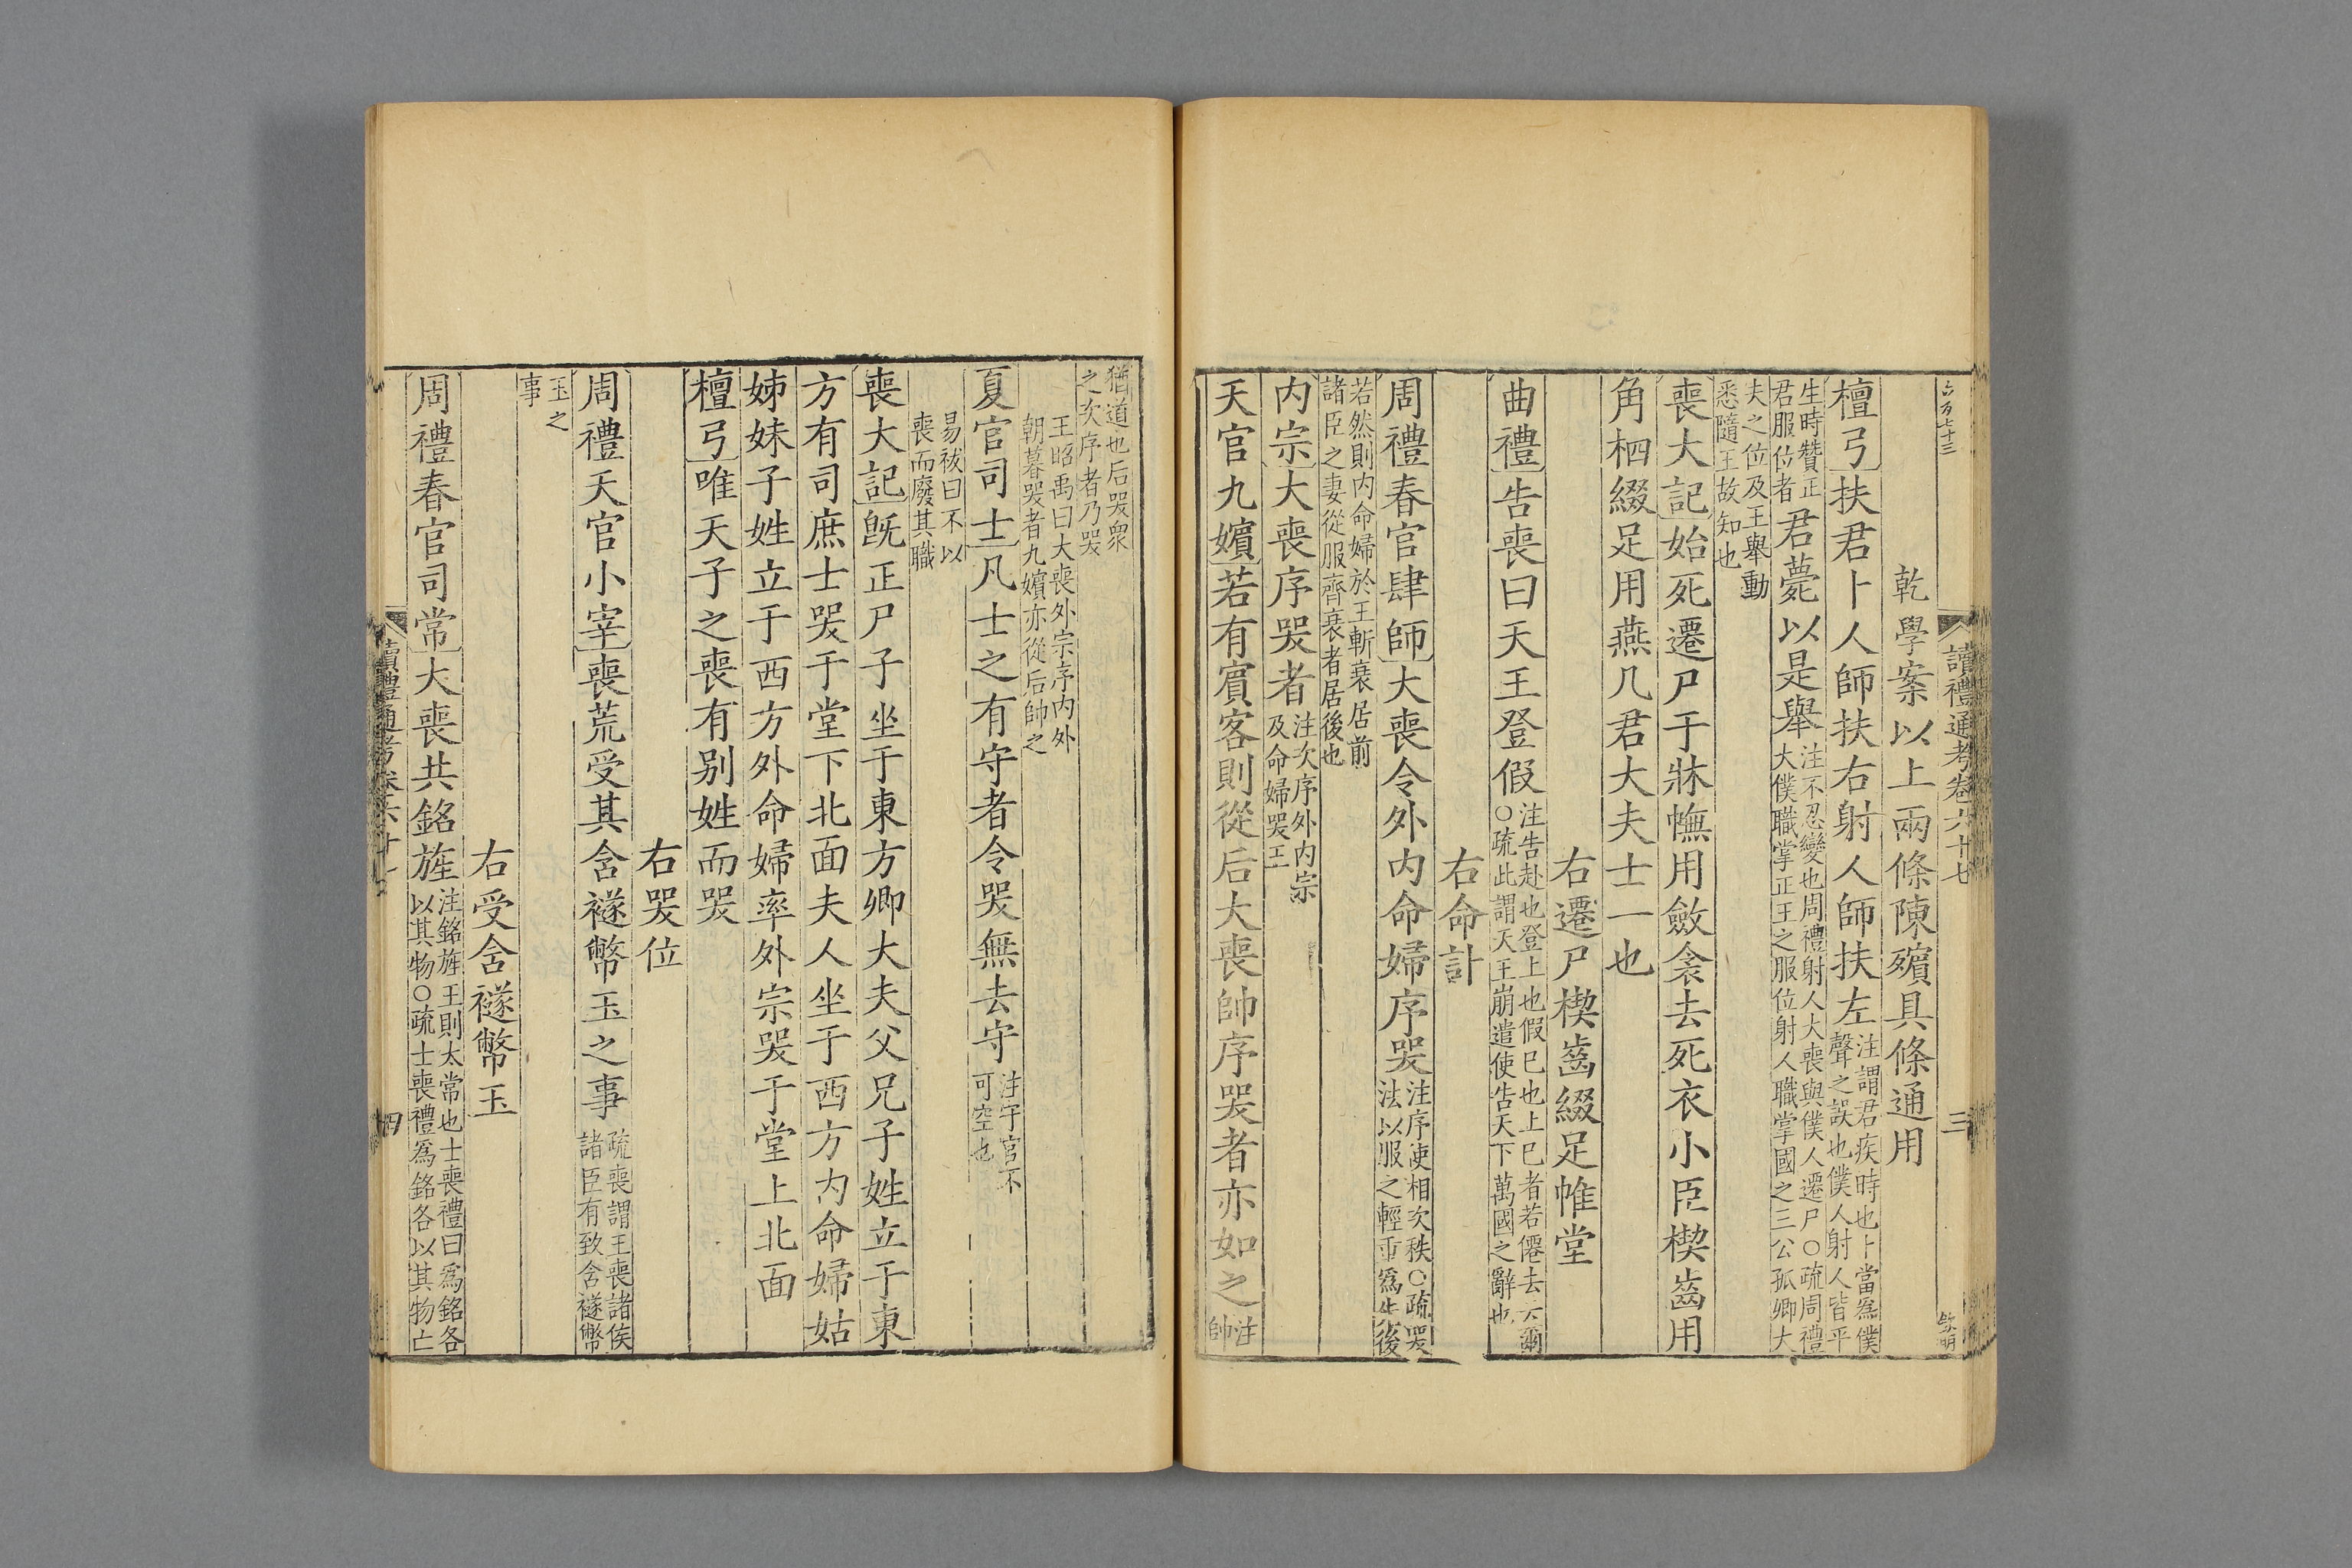 六百七十三
讀禮通考卷六十七
三
乾學案以上兩條陳殯具條通用
檀弓扶君卜人師扶右射人師扶左
注謂君疾時也卜當爲僕
聲之誤也僕人射人皆平
生時贊正
君服位者
君薨以是舉
注不忍變也周禮射人大喪與僕人遷尸○疏周禮
大僕職掌正王之服位射人職掌國之三公孤卿大
夫之位及王舉動
悉隨王故知也
喪大記始死遷尸于牀幠用斂衾去死衣小臣楔齒用
角柶綴足用燕几君大夫士一也
右遷尸楔齒綴足帷堂
曲禮告喪曰天王登假
注告赴也登上也假已也上已者若僊去云爾
○疏此謂天王崩遣使告天下萬國之辭也
右命訃
周禮春官肆師大喪令外内命婦序哭
注序使相次秩○疏哭
法以服之輕重爲先後
若然則内命婦於王斬衰居前
諸臣之妻從服齊衰者居後也
内宗大喪序哭者
注次序外内宗
及命婦哭王
天官九嬪若有賓客則從后大喪帥序哭者亦如之
注
帥
猶道也后哭衆
之次序者乃哭
王昭禹曰大喪外宗序内外
朝暮哭者九嬪亦從后帥之
夏官司士凡士之有守者令哭無去守
注守官不
可空也
易祓曰不以
喪而廢其職
喪大記旣正尸子坐于東方卿大夫父兄子姓立于東
方有司庶士哭于堂下北面夫人坐于西方内命婦姑
姊妹子姓立于西方外命婦率外宗哭于堂上北面
檀弓唯天子之喪有别姓而哭
右哭位
周禮天官小宰喪荒受其含襚幣玉之事
疏喪謂王喪諸侯
諸臣有致含襚幣
玉之
事
右受含襚幣玉
周禮春官司常大喪共銘旌
注銘旌王則太常也士喪禮曰爲銘各
以其物○疏士喪禮爲銘各以其物亡
讀禮通考卷六十七
四